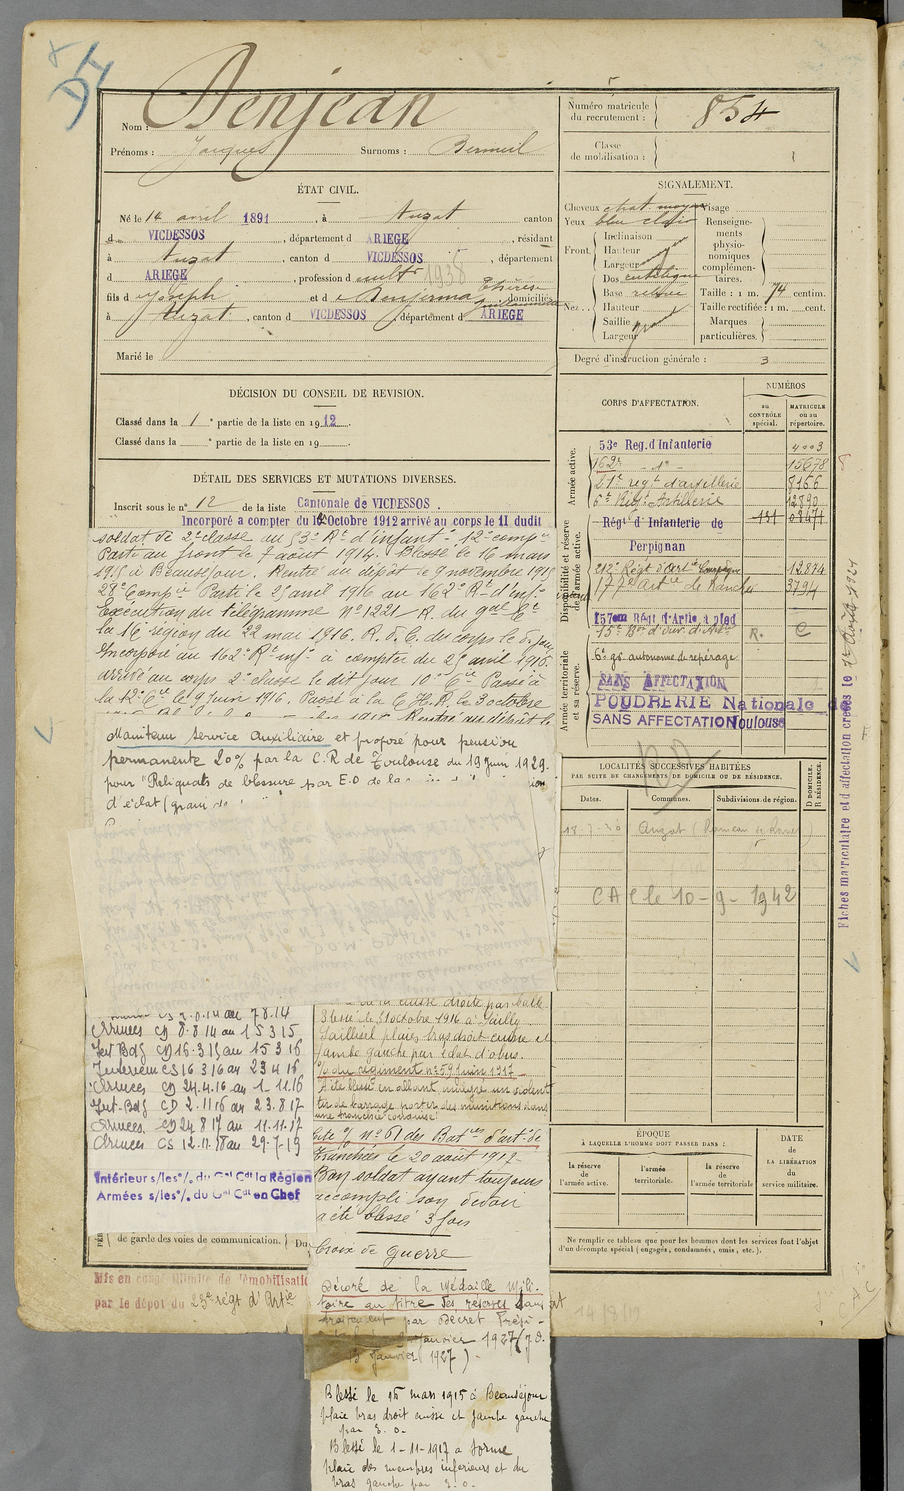 Denjean
Nom :
Prénoms : Jacques Surnoms : Bermeil
ÉTAT CIVIL.
Né le 14 avril 1891, à Auzat canton
d VICDESSOS, département d ARIEGE, résidant
à Auzat, canton d VICDESSOS, département
d ARIEGE, profession d cultr 1938
fils d Joseph et d Denjerma Thérèse domiciliés
à Auzat, canton d VICDESSOS, département d ARIEGE
Marié le
DÉCISION DU CONSEIL DE REVISION.
Classé dans la 1e partie de la liste en 1912.
Classé dans la e partie de la liste en 19
DÉTAIL DES SERVICES ET MUTATIONS DIVERSES.
Inscrit sous le n° 12 de la liste Cantonale de VICDESSOS.
Incorporé a compter du 10 Octobre 1912 arrivé au corps le 11 dudit
soldat de 2e classe au 53e Rt d'infantie 12e compie
Parti au front le 7 août 1914. Blessé le 16 mars
1915 à Beauséjour. Rentré au dépôt le 9 novembre 1915
28e Compie Parti le 25 avril 1916 au 162e Rt d'infie
Exécution du télégramme n° 1221 R. du gal Ct
la 16e région du 22 mai 1916. R. d. C. du corps le 5 juin
Incorporé au 162e Rt infie à compter du 25 avril 1916.
arrivé au corps 2e classe le dit jour 10e Cie Passé à
la 12e Cie le 9 juin 1916. Passé à la C.H.R. le 3 octobre
Rentré au dépôt le
Maintenu Service Auxiliaire et proposé pour pension
permanente 20% par la C.R de Toulouse du 19 Juin 1929.
pour "Reliquats de blessure par E.O de la
d'éclat (grain de
CS 2.8.14 au 7 8.14
Armées CD 8-8.14 au 15 3 15
Int Bdg CD 16-3.15 au 15 3 16
Intérieur CS 16 3 16 au 23 4 16
Armées CD 24.4.16 au 1-11.16
Int-Bdg CD 2.11 16 au 23.8.17
Armées CD 24 8 17 au 11.11.17
Armées CS 12.11.18 au 29-7-19
Intérieur s/les °/. du Gal Cdt la Région
Armées s/les °/. du Gal Cdt en Chef
de garde des voies de communication. Du
Mis en congé illimité de démobilisation
par le dépot du 23e régt d'Artie
de la cuisse droite par balle
Blessé le 31 octobre 1916 à Sailly-
Saillisel plaies bras droit cuisse et
jambe gauche par éclat d'obus.
°/. du régiment n° 59 juin 1917
A été blessé en allant, malgré un violent
tir de barrage porter des munitions dans
une tranchée conquise
Cité °/. n° 61 des Baties d'art de
Tranchées le 20 août 1917
Bon soldat ayant toujours
accompli son devoir
a été blessé 3 fois
Croix de Guerre
Décoré de la Médaille Mili-
taire au titre des réserves sans
traitement par Décret Prési-
Janvier 1927 (J.O.
13 Janvier 1927) -
Blessé le 16 mars 1915 à Beauséjour
plaie bras droit cuisse et jambe gauche
par E. O.
Blessé le 1-11-1917 à Somme
plaie des membres inférieurs et du
bras gauche par E. O.
Numéro matricule du recrutement : 854
Classe de mobilisation :
SIGNALEMENT.
Cheveux chat. moyen Visage
Yeux bleu clair
Front. Inclinaison
Hauteur moyen
Largeur
Nez. Dos
Base relevée
Hauteur
Saillie grand
Largeur
Renseignements physionomiques complémentaires.
Taille : 1 m. 74 centim.
Taille rectifiée : 1 m. cent.
Marques particulières.
Degré d'instruction générale : 3
CORPS D'AFFECTATION.
NUMÉROS
au CONTRÔLE spécial.
MATRICULE ou au répertoire.
Armée active.
53e Reg. d'Infanterie 4003
162e -d°- 15678
21e régt d'artillerie 8166
6e Régt Artillerie 12890
Disponibilité et réserve de l'armée active.
Régt d'Infanterie de Perpignan 131 03471
212e Régt d'Artie Campagne 12874
177e artie de tranchée 3794
157em Régt d'Artie à pied
15e Bon d'ouv. d'Artie R. C
Armée territoriale et sa réserve.
6e gr. autonome de repérage
SANS AFFECTATION
POUDRERIE Nationale de
SANS AFFECTATION Toulouse
LOCALITÉS SUCCESSIVES HABITÉES
PAR SUITE DE CHANGEMENTS DE DOMICILE OU DE RÉSIDENCE.
Dates. Communes. Subdivisions de région. D DOMICILE. R RÉSIDENCE.
18-7-30 Auzat (Hameau de
CAC le 10-9-1942
ÉPOQUE
À LAQUELLE L'HOMME DOIT PASSER DANS :
la réserve de l'armée active.
l'armée territoriale.
la réserve de l'armée territoriale
DATE de LA LIBÉRATION du service militaire.
Ne remplir ce tableau que pour les hommes dont les services font l'objet
d'un décompte spécial (engagés, condamnés, omis, etc.).
14/8/19
CAC
Fiches matriculaire et d'affectation créées le 1924